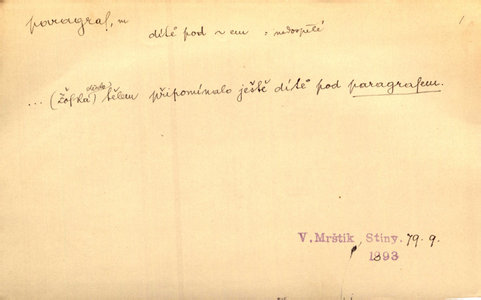 paragraf, m
dítě pod ~ em : nedospělé
... (Žofka) tělem připomínalo ještě dítě pod paragrafem.
V. Mrštík, Stíny. 79. 9.
1893